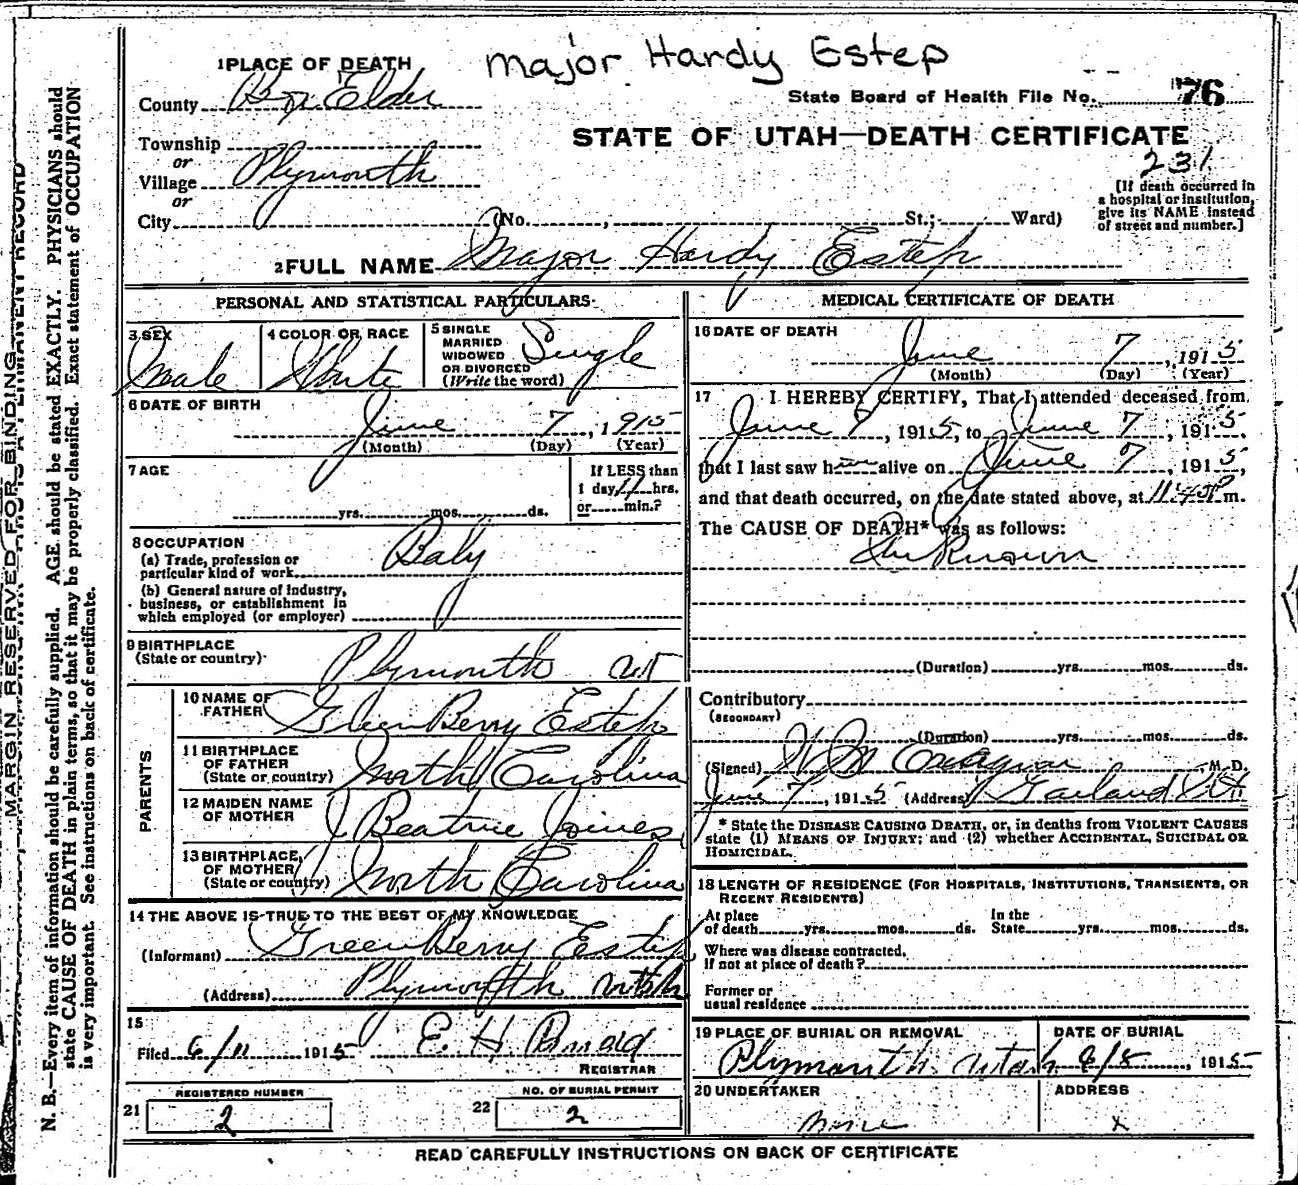 Major Hardy Estep
1 PLACE OF DEATH
County Box Elder
State Board of Health File No. 76
Township
or
Village Plymouth
or
City (No. , St.; Ward)
STATE OF UTAH—DEATH CERTIFICATE
231
[If death occurred in
a hospital or institution,
give its NAME instead
of street and number.]
2 FULL NAME Major Hardy Estep
PERSONAL AND STATISTICAL PARTICULARS
3 SEX
Male
4 COLOR OR RACE
White
5 SINGLE
MARRIED
WIDOWED
OR DIVORCED
(Write the word)
Single
6 DATE OF BIRTH
June 7, 1915
(Month) (Day) (Year)
7 AGE
yrs. mos. ds.
If LESS than
1 day 11 hrs.
or min.?
8 OCCUPATION
(a) Trade, profession or
particular kind of work
Baby
(b) General nature of Industry,
business, or establishment in
which employed (or employer)
9 BIRTHPLACE
(State or country)
Plymouth Ut
PARENTS
10 NAME OF
FATHER
Green Berry Estep
11 BIRTHPLACE
OF FATHER
(State or country)
North Carolina
12 MAIDEN NAME
OF MOTHER
J Beatrice Joines
13 BIRTHPLACE
OF MOTHER
(State or country)
North Carolina
14 THE ABOVE IS TRUE TO THE BEST OF MY KNOWLEDGE
(Informant) Green Berry Estep
(Address) Plymouth Utah
15
Filed 6/11 1915 E. H.
REGISTRAR
REGISTERED NUMBER
21 2
NO. OF BURIAL PERMIT
22 2
MEDICAL CERTIFICATE OF DEATH
16 DATE OF DEATH
June 7, 1915
(Month) (Day) (Year)
17 I HEREBY CERTIFY, That I attended deceased from
June 7, 1915, to June 7, 1915,
that I last saw him alive on June 7, 1915,
and that death occurred, on the date stated above, at 11:45 P m.
The CAUSE OF DEATH* was as follows:
Unknown
(Duration) yrs. mos. ds.
Contributory
(SECONDARY)
(Duration) yrs. mos. ds.
(Signed) M. D.
June 7, 1915 (Address) Garland Ut
* State the DISEASE CAUSING DEATH, or, in deaths from VIOLENT CAUSES
state (1) MEANS OF INJURY; and (2) whether ACCIDENTAL, SUICIDAL OR
HOMICIDAL.
18 LENGTH OF RESIDENCE (FOR HOSPITALS, INSTITUTIONS, TRANSIENTS, OR
RECENT RESIDENTS)
At place
of death yrs. mos. ds.
In the
State yrs. mos. ds.
Where was disease contracted,
If not at place of death?
Former or
usual residence
19 PLACE OF BURIAL OR REMOVAL
Plymouth Utah
DATE OF BURIAL
6/8, 1915
20 UNDERTAKER
None
ADDRESS
x
READ CAREFULLY INSTRUCTIONS ON BACK OF CERTIFICATE
MARGIN RESERVED FOR BINDING
PERMANENT RECORD
N. B.—Every item of information should be carefully supplied. AGE should be stated EXACTLY. PHYSICIANS should
state CAUSE OF DEATH in plain terms, so that it may be properly classified. Exact statement of OCCUPATION
is very important. See instructions on back of certificate.